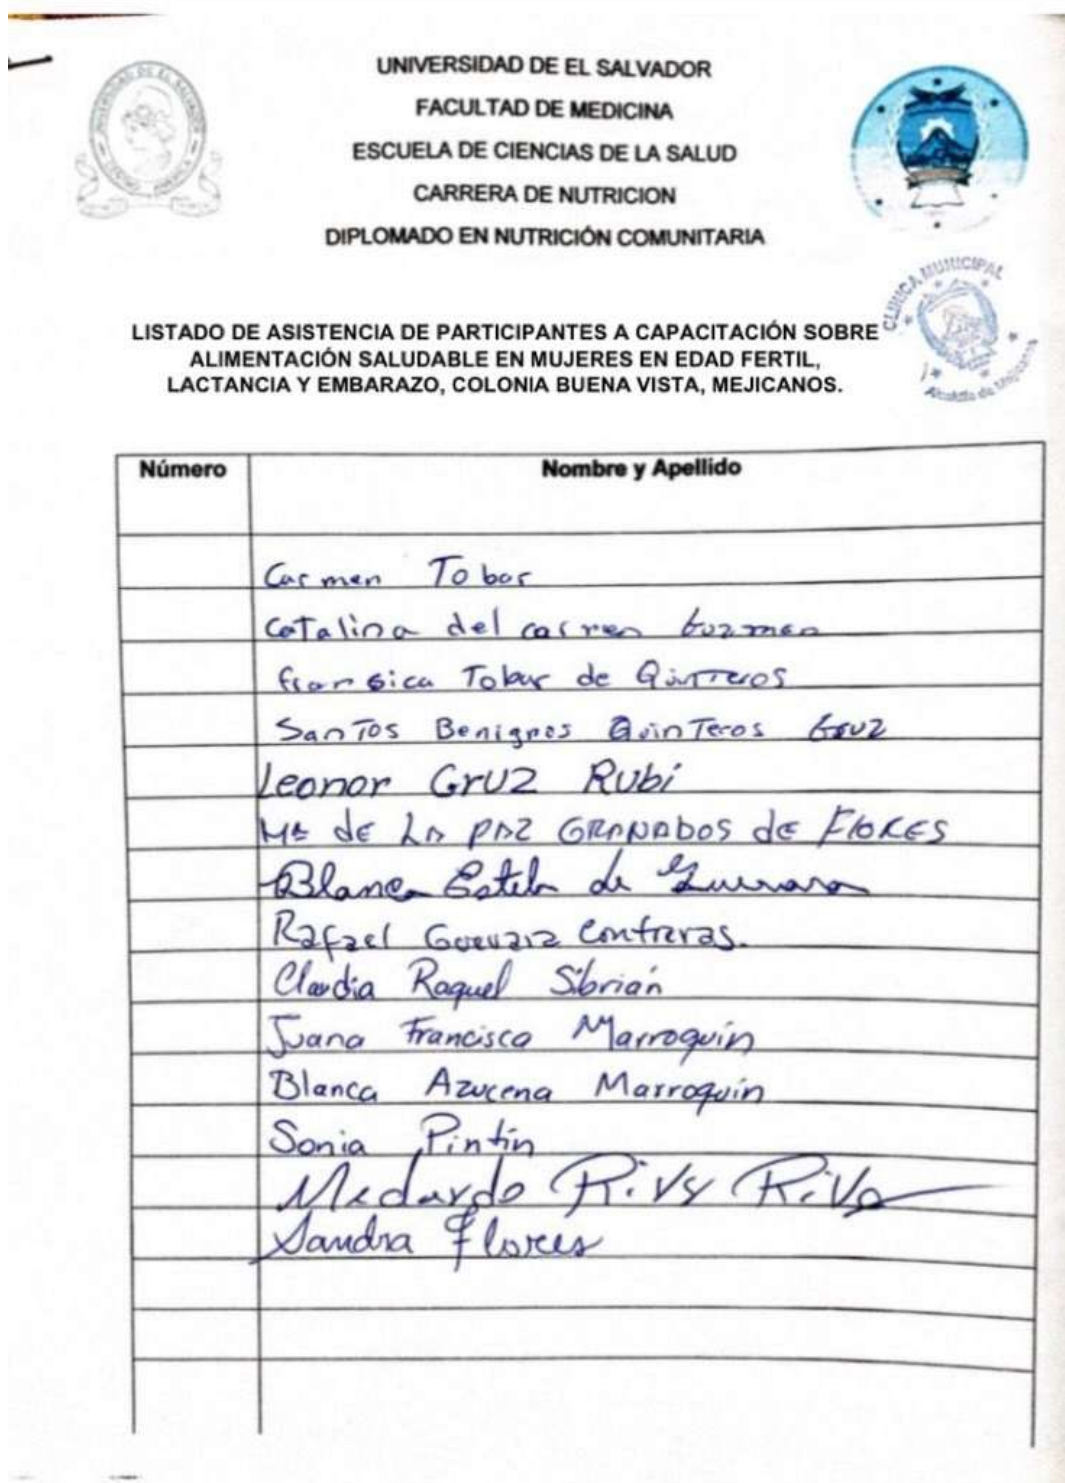 UNIVERSIDAD DE EL SALVADOR
FACULTAD DE MEDICINA
ESCUELA DE CIENCIAS DE LA SALUD
CARRERA DE NUTRICION
DIPLOMADO EN NUTRICIÓN COMUNITARIA
CLINICA MUNICIPAL
Alcaldía de Mejicanos
LISTADO DE ASISTENCIA DE PARTICIPANTES A CAPACITACIÓN SOBRE
ALIMENTACIÓN SALUDABLE EN MUJERES EN EDAD FERTIL,
LACTANCIA Y EMBARAZO, COLONIA BUENA VISTA, MEJICANOS.
Número Nombre y Apellido
Carmen Tobar
Catalina del carmen Guzman
Fransica Tobar de Quinteros
Santos Benignos Quinteros
Leonor Cruz Rubi
Ma de LA PAZ GRANADOS de FLORES
Blanca Estela de Guevara
Rafael Guevara Contreras.
Claudia Raquel Sibrián
Juana Francisca Marroquín
Blanca Azucena Marroquín
Sonia Pintín
Medardo
Sandra Flores